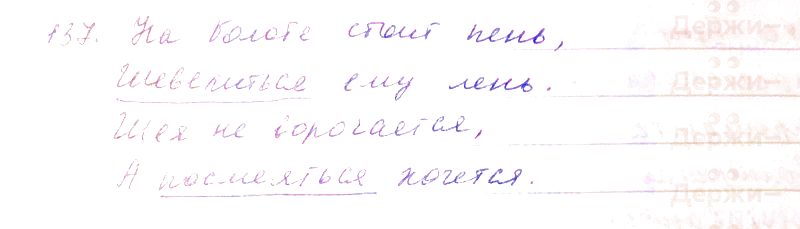 137. На болоте стоит пень,
Шевелиться ему лень.
Шея не ворочается,
А посмеяться хочется.
Держи-
Держи-
Держи-
Держи-